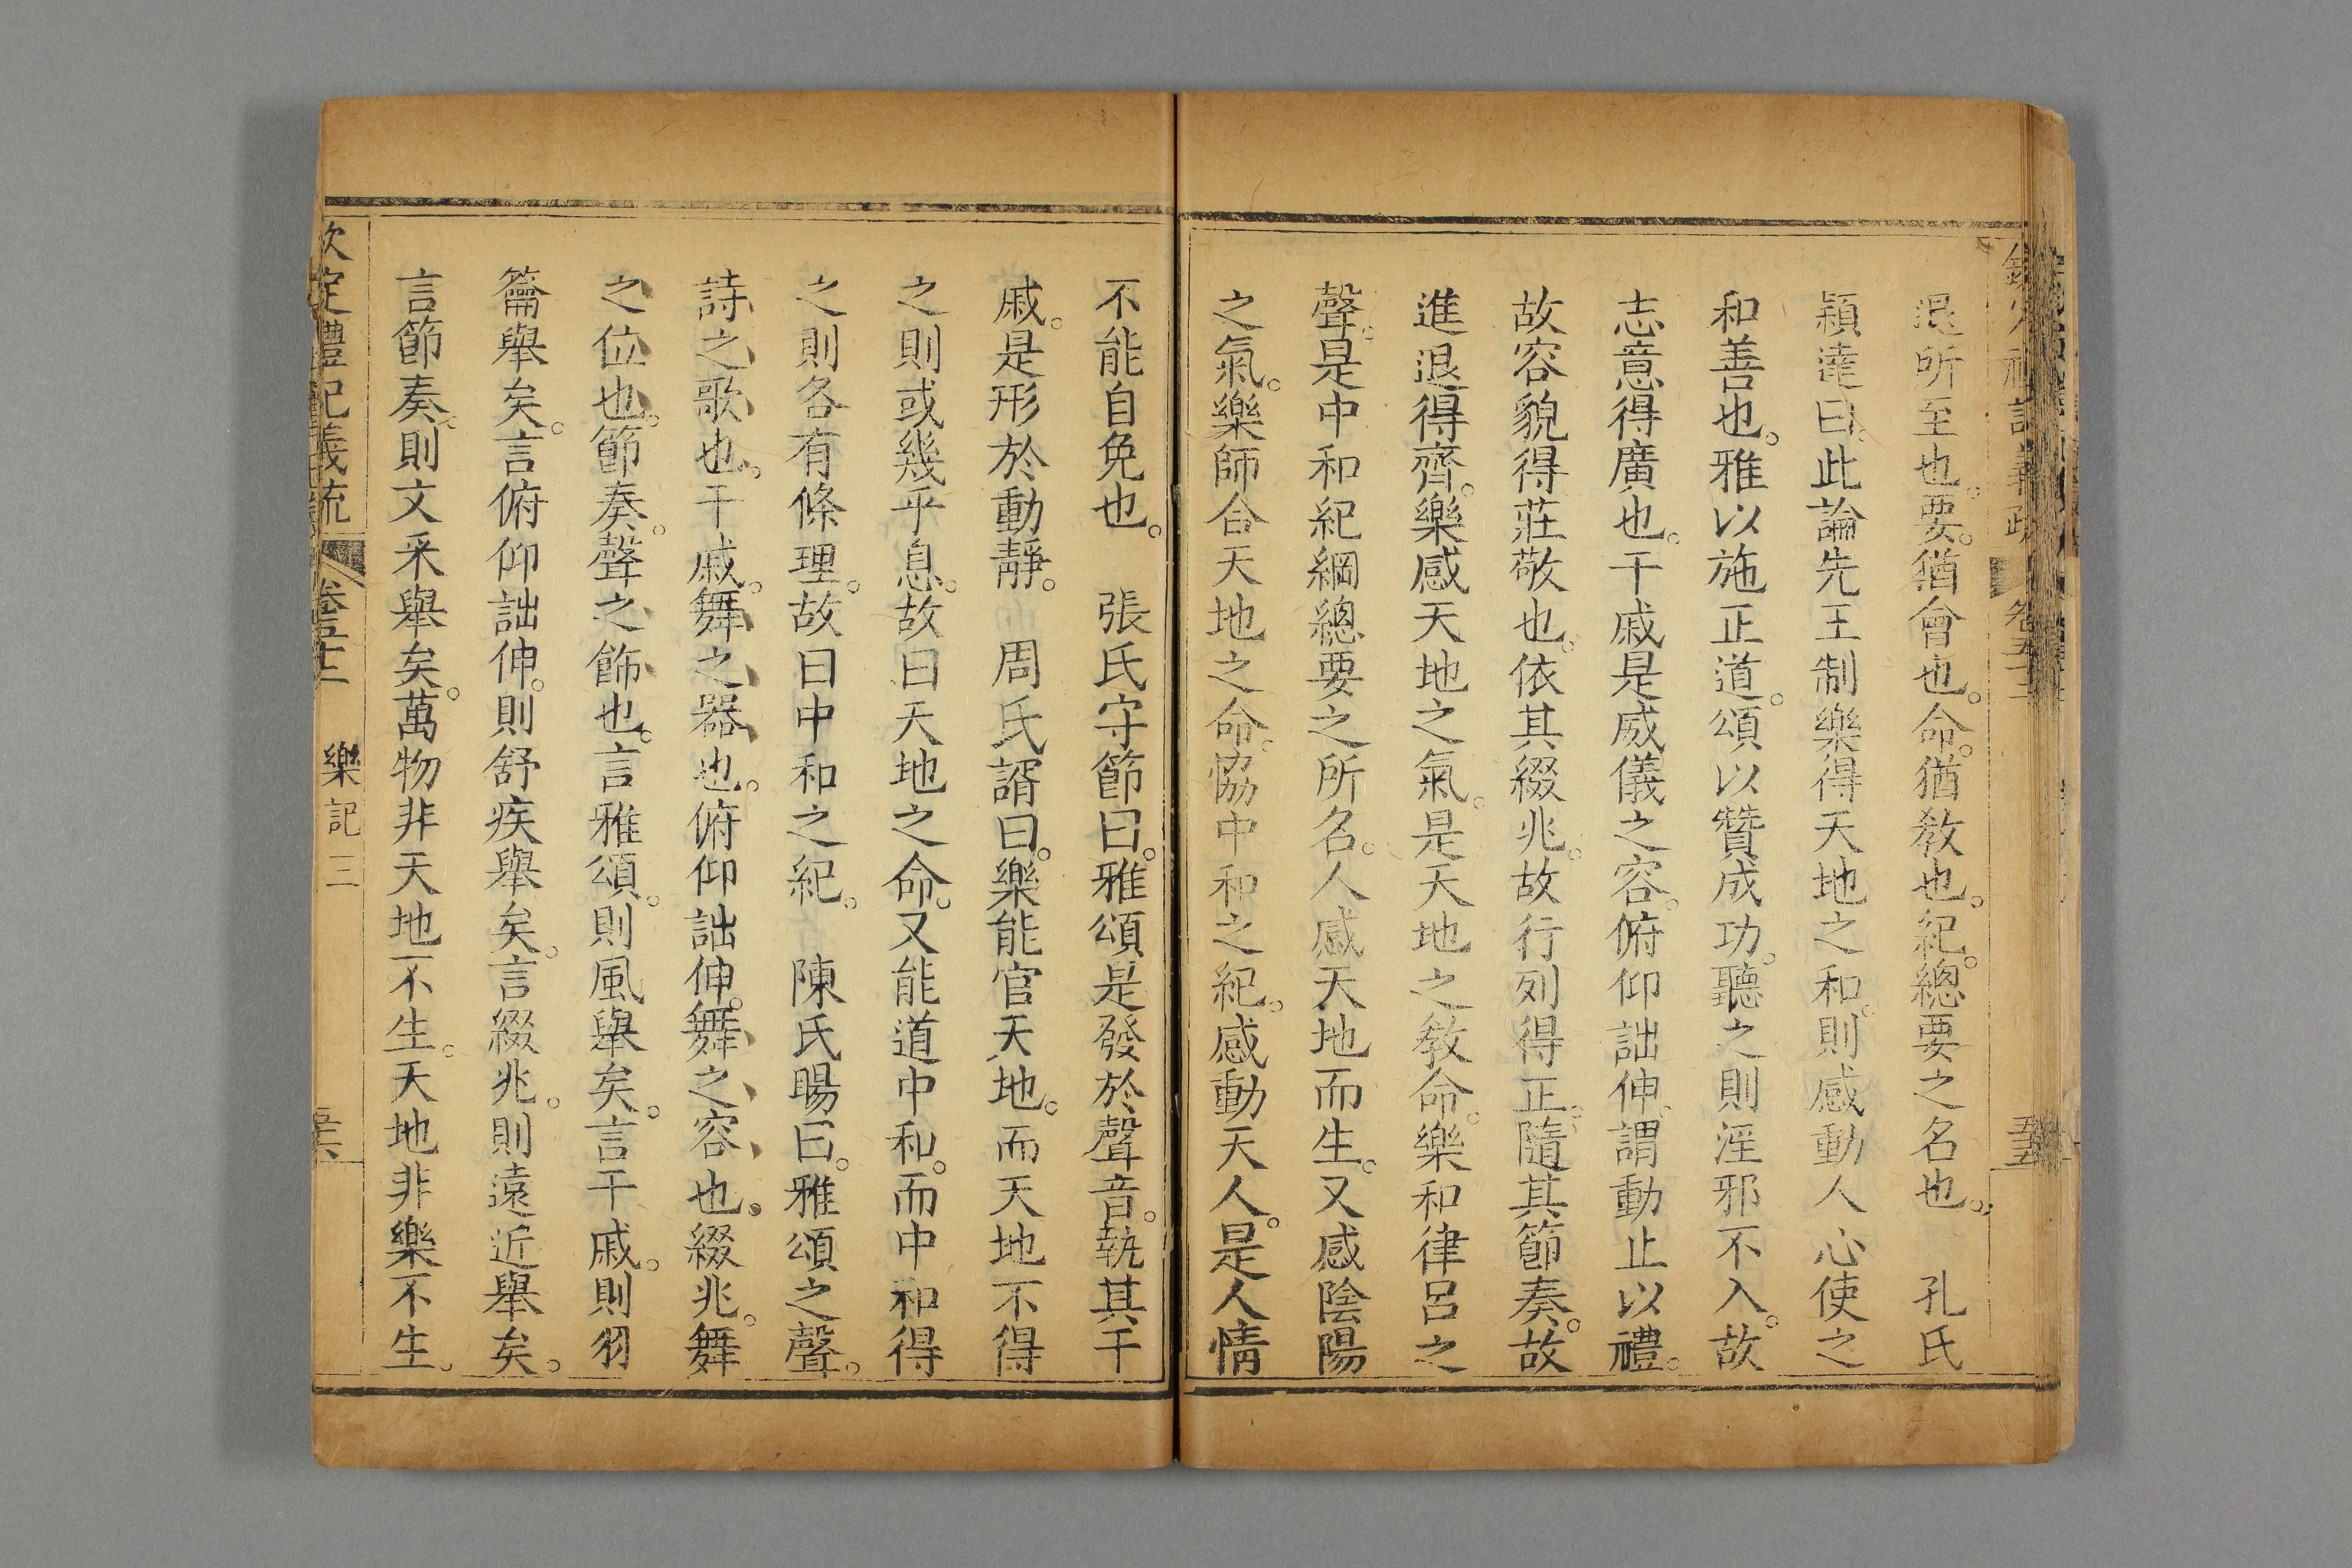 退所至也。要。猶會也。命。猶敎也。紀。總要之名也。　孔氏
穎達曰。此論先王制樂得天地之和。則感動人心使之
和善也。雅以施正道。頌以贊成功。聽之則淫邪不入。故
志意得廣也。干戚是威儀之容。俯仰詘伸。謂動止以禮。
故容貌得莊敬也。依其綴兆。故行列得正。隨其節奏。故
進退得齊。樂感天地之氣。是天地之敎命。樂和律呂之
聲。是中和紀綱總要之所名。人感天地而生。又感陰陽
之氣。樂師合天地之命。協中和之紀。感動天人。是人情
不能自免也。　張氏守節曰。雅頌是發於聲音。執其干
戚。是形於動靜。　周氏諝曰。樂能官天地。而天地不得
之則或幾乎息。故曰天地之命。又能道中和。而中和得
之則各有條理。故曰中和之紀。　陳氏暘曰。雅頌之聲。
詩之歌也。干戚。舞之器也。俯仰詘伸。舞之容也。綴兆。舞
之位也。節奏。聲之飾也。言雅頌。則風舉矣。言干戚。則羽
籥舉矣。言俯仰詘伸。則舒疾舉矣。言綴兆。則遠近舉矣。
言節奏。則文采舉矣。萬物非天地不生。天地非樂不生。
欽定禮記義疏　卷五十二　樂記三